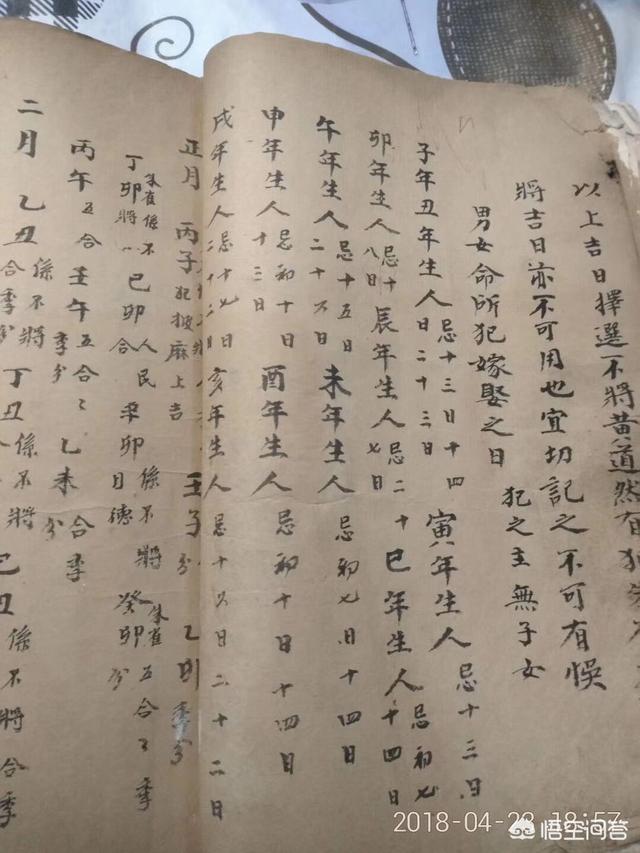 以上吉日擇選不將黃道然有犯
將吉日亦不可用也宜切記之不可有悞
男女命所犯嫁娶之日 犯之主無子女
子年丑年生人忌十三日十四日二十三日 寅年生人忌十三日
卯年生人忌十八日 辰年生人忌二十七日 巳年生人忌初七十四日
午年生人忌十五日二十六日 未年生人忌初七日十四日
申年生人忌初十日十三日 酉年生人忌初十日十四日
戌年生人忌十七日二十二日 亥年生人忌十六日二十二日
正月 丙子犯披麻上吉 壬子 乙卯季分
丁卯朱雀係不將 己卯人民合 辛卯係不將日德 癸卯朱雀五合季分
丙午五合 壬午五合季分 乙未合季分
二月 乙丑係不將合季分 丁丑係不將 己丑係不將合季
2018-04-28 18:57
悟空问答